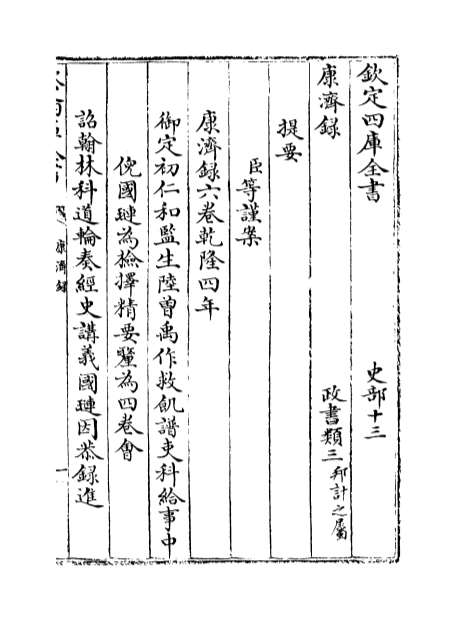 欽定四庫全書　史部十三
康濟録　政書類三邦計之屬
提要
臣等謹案
康濟録六卷乾隆四年
御定初仁和監生陸曽禹作救飢譜吏科給事中
倪國璉為檢擇精要釐為四巻會
詔翰林科道輪奏經史講義國璉因恭録進
康濟録
一